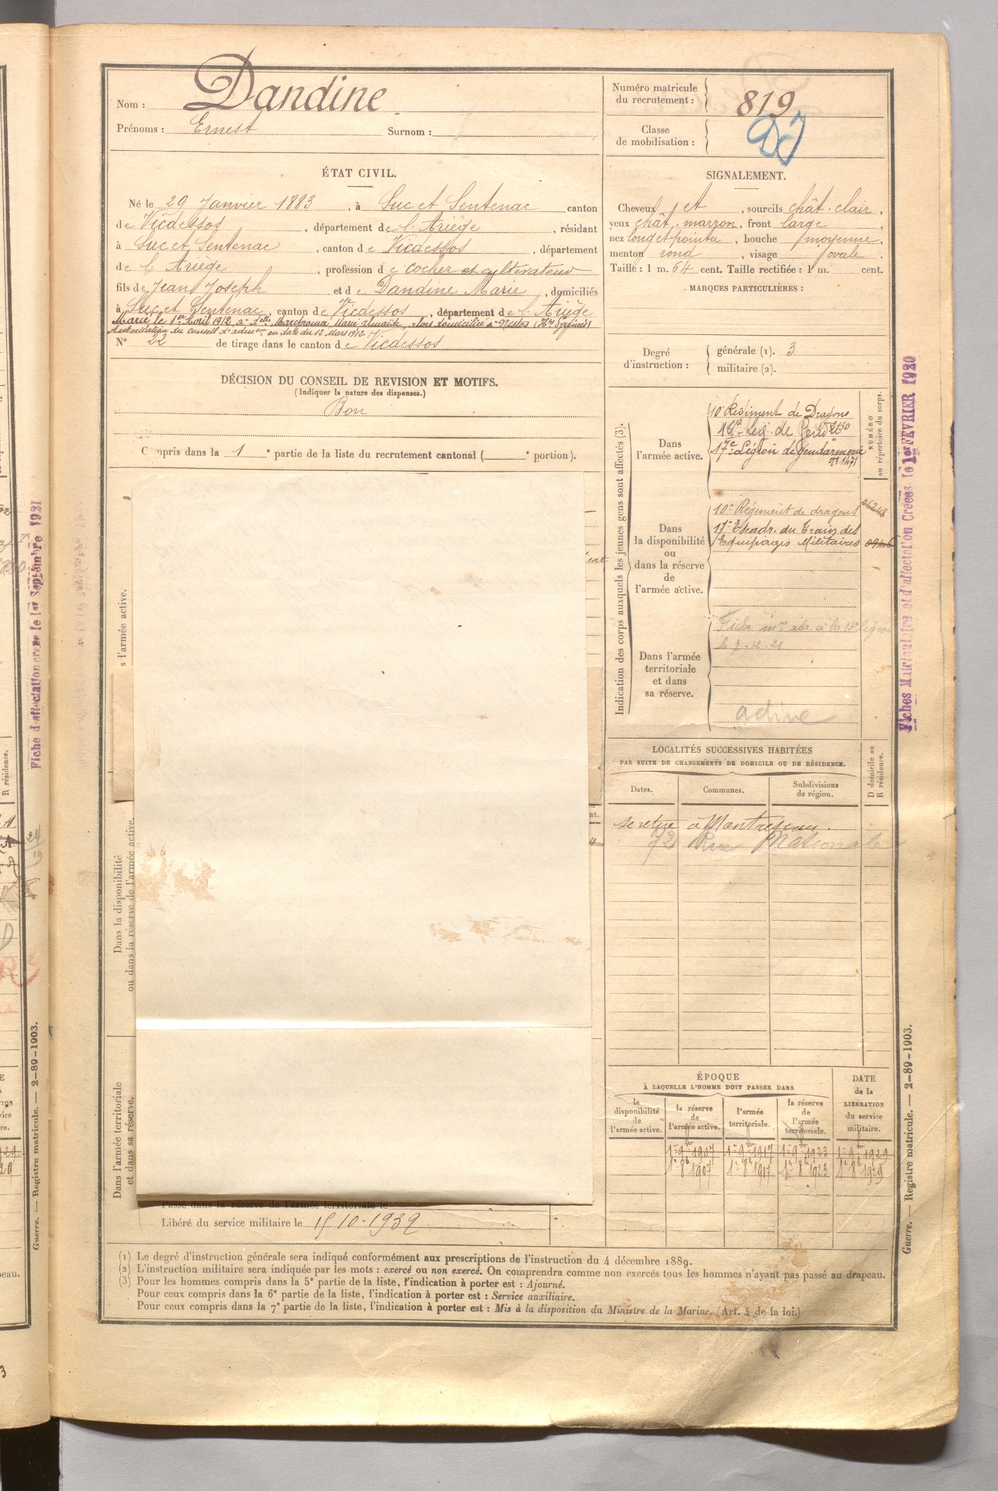 Nom : Dandine
Prénoms : Ernest Surnom :
Numéro matricule du recrutement : 819
Classe de mobilisation :
ÉTAT CIVIL.
Né le 29 Janvier 1883, à Suc et Sentenac canton
de Vicdessos, département de l'Ariège, résidant
à Suc et Sentenac, canton de Vicdessos, département
de l'Ariège, profession de cocher et cultivateur
fils de Jean Joseph et de Dandine Marie, domiciliés
à Suc et Sentenac, canton de Vicdessos, département de l'Ariège
Marié le 1er Avril 1912 à Delle
N° 22 de tirage dans le canton de Vicdessos
DÉCISION DU CONSEIL DE REVISION ET MOTIFS.
(Indiquer la nature des dispenses.)
Bon
Compris dans la 1e partie de la liste du recrutement cantonal ( e portion).
SIGNALEMENT.
Cheveux et, sourcils chât. clair,
yeux chât. marron, front large
nez long et pointu, bouche moyenne,
menton rond, visage ovale
Taille : 1 m. 64 cent. Taille rectifiée : 1 m. cent.
MARQUES PARTICULIÈRES :
Degré d'instruction :
générale (1). 3
militaire (2).
Indication des corps auxquels les jeunes gens sont affectés (3).
NUMÉRO au répertoire du corps.
Dans l'armée active.
10e Régiment de Dragons
17e Légion de gendarmerie
Dans la disponibilité ou dans la réserve de l'armée active.
10e Régiment de dragons
17e Escadr. du Train des
Equipages Militaires
Dans l'armée territoriale et dans sa réserve.
active
LOCALITÉS SUCCESSIVES HABITÉES
PAR SUITE DE CHANGEMENTS DE DOMICILE OU DE RÉSIDENCE.
D domicile ou R résidence.
Dates. Communes. Subdivisions de région.
se retire à Montréjeau.
72 Rue Nationale
ÉPOQUE
À LAQUELLE L'HOMME DOIT PASSER DANS
DATE de la LIBÉRATION du service militaire.
la disponibilité de l'armée active. la réserve de l'armée active. l'armée territoriale. la réserve de l'armée territoriale.
s l'armée active.
Dans la disponibilité
ou dans la réserve de l'armée active.
Dans l'armée territoriale
et dans sa réserve.
Passé dans la réserve de l'armée territoriale le
Libéré du service militaire le 15-10-1932
(1) Le degré d'instruction générale sera indiqué conformément aux prescriptions de l'instruction du 4 décembre 1889.
(2) L'instruction militaire sera indiquée par les mots : exercé ou non exercé. On comprendra comme non exercés tous les hommes n'ayant pas passé au drapeau.
(3) Pour les hommes compris dans la 5e partie de la liste, l'indication à porter est : Ajourné.
Pour ceux compris dans la 6e partie de la liste, l'indication à porter est : Service auxiliaire.
Pour ceux compris dans la 7e partie de la liste, l'indication à porter est : Mis à la disposition du Ministre de la Marine. (Art. 4 de la loi.)
Fiches Matriculaire et d'affectation Créées le 1er FEVRIER 1920
Guerre. — Registre matricule. — 2-89-1903.
Fiche d'affectation créée le 1er Septembre 1921
Guerre. — Registre matricule. — 2-89-1903.